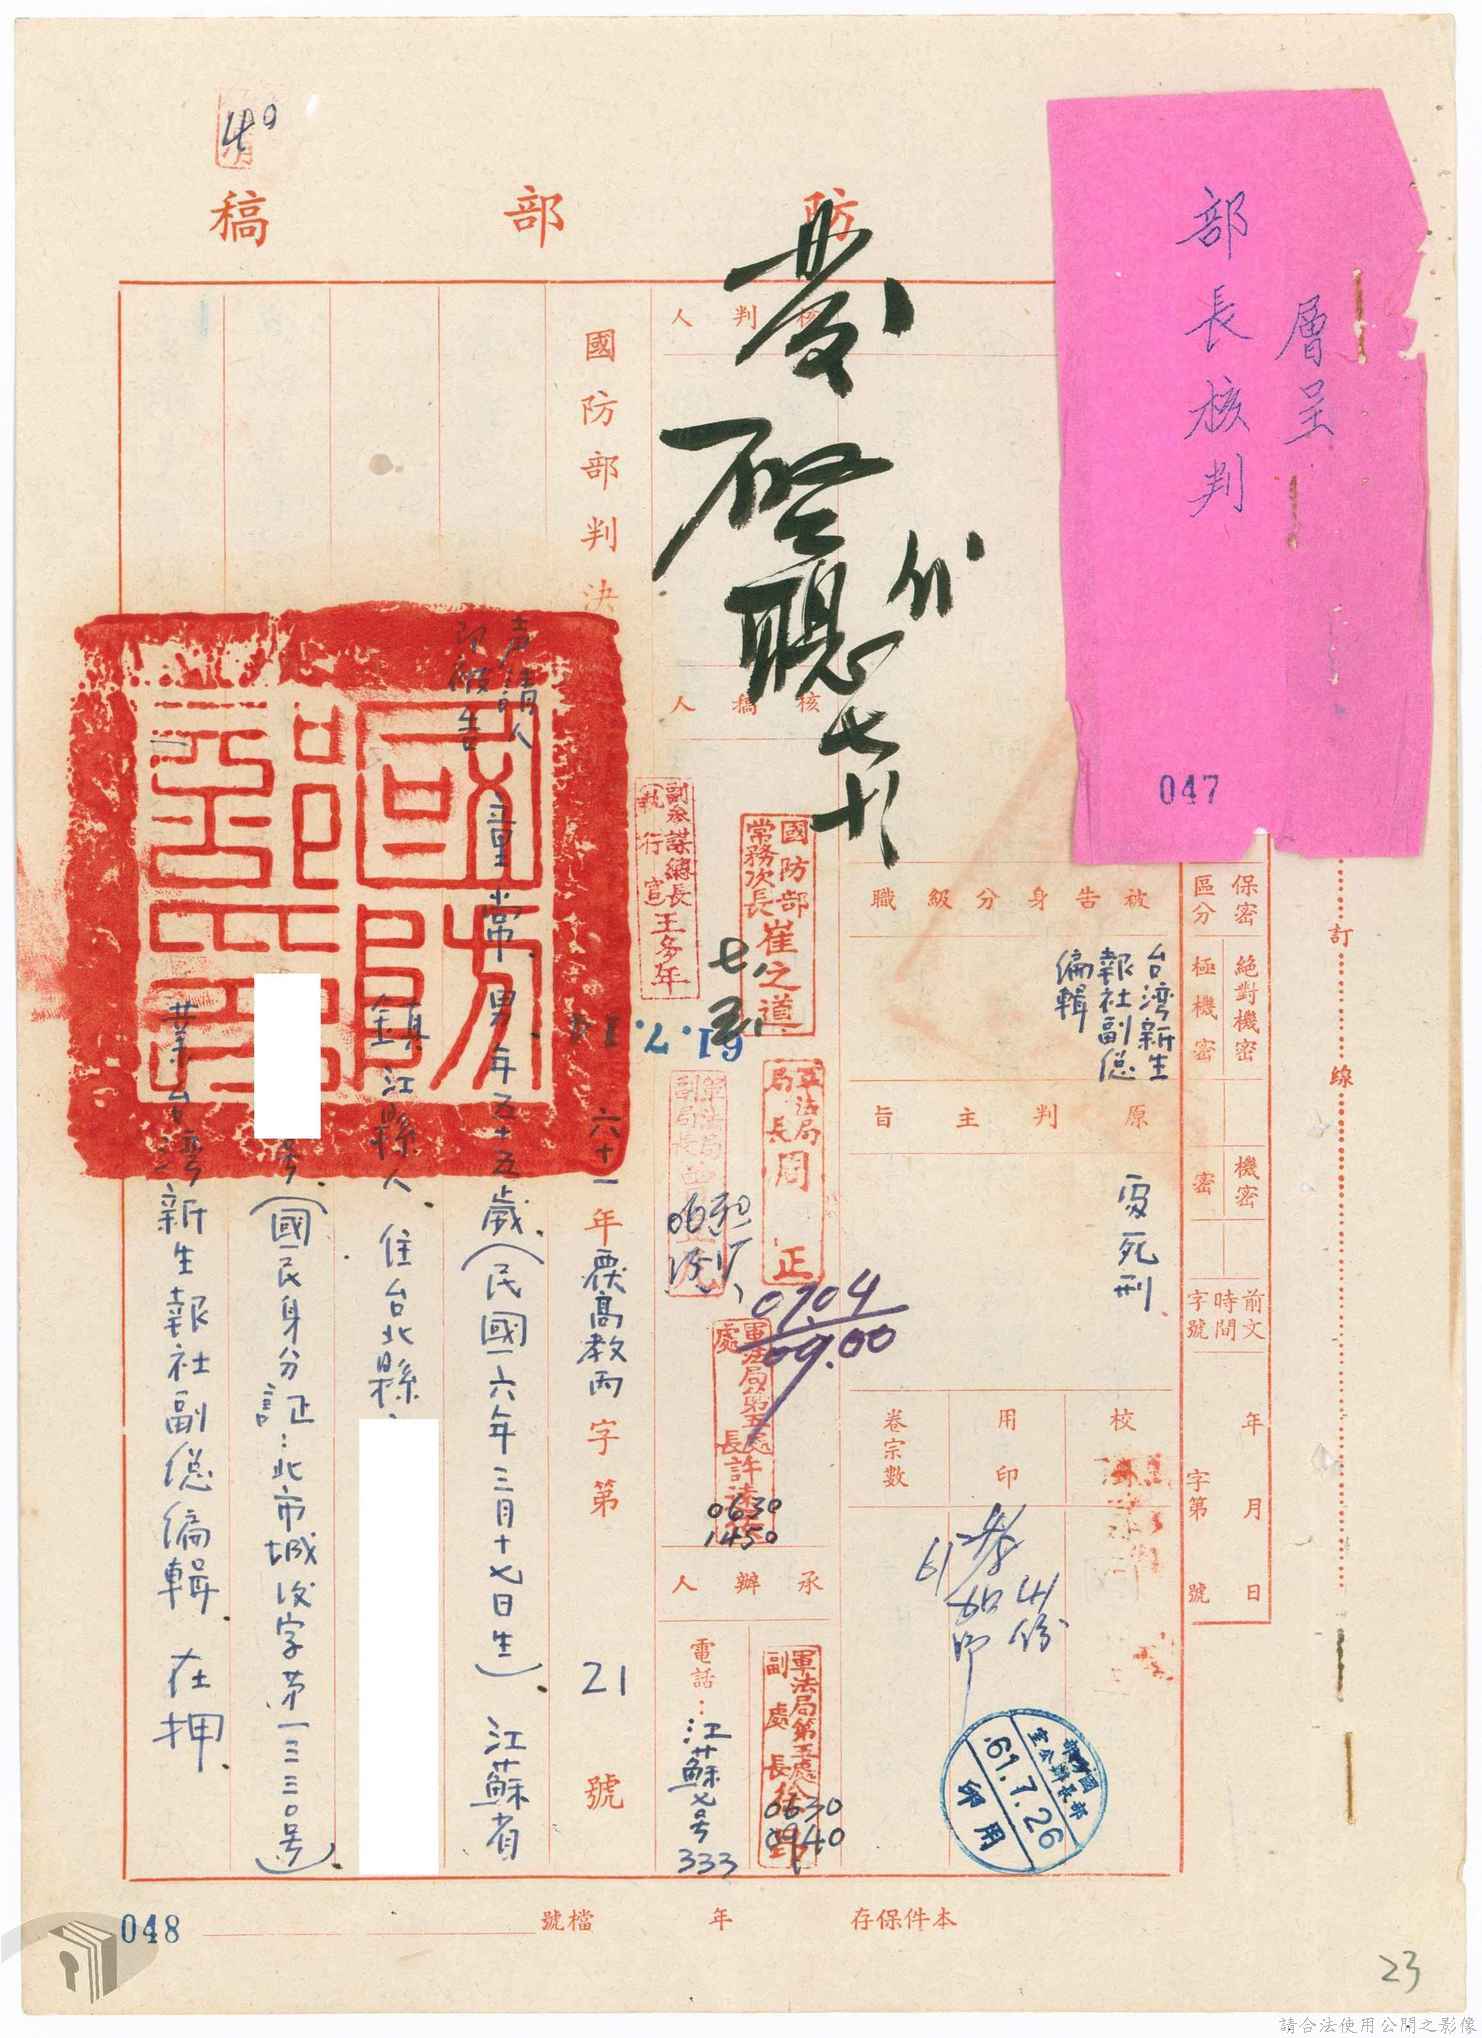 層呈
部長核判
047
防部稿
訂線
保密區分
絕對機密
極機密
機密
密
前文時間字號
年月日
字第號
被告身分級職
台湾新生報社副總編輯
原判主旨
處死刑
校
用印
卷宗數
61
4份
國防部部長辦公室
61.7.26
印用
核判人
發
代
七
核稿人
國防部常務次長崔之道
副參謀總長(執行官)王多年
61.7.14
軍法局局長周正
軍法局副局長
07.04
09.00
軍法局第五處處長許
0630
1450
承辦人
軍法局第五處副處長徐
0630
0940
電話：江蘇七号333
國防部判決
六十一年覆高教丙字第21號
國防部印
聲請人
即被告
童常、男、年五十五歲(民國六年三月十七日生)、江蘇省
鎮江縣人、住台北縣
号、(國民身分証：北市城改字第一三三〇号)、
業台灣新生報社副總編輯、在押、
本件保存年
檔號
048
23
請合法使用公開之影像